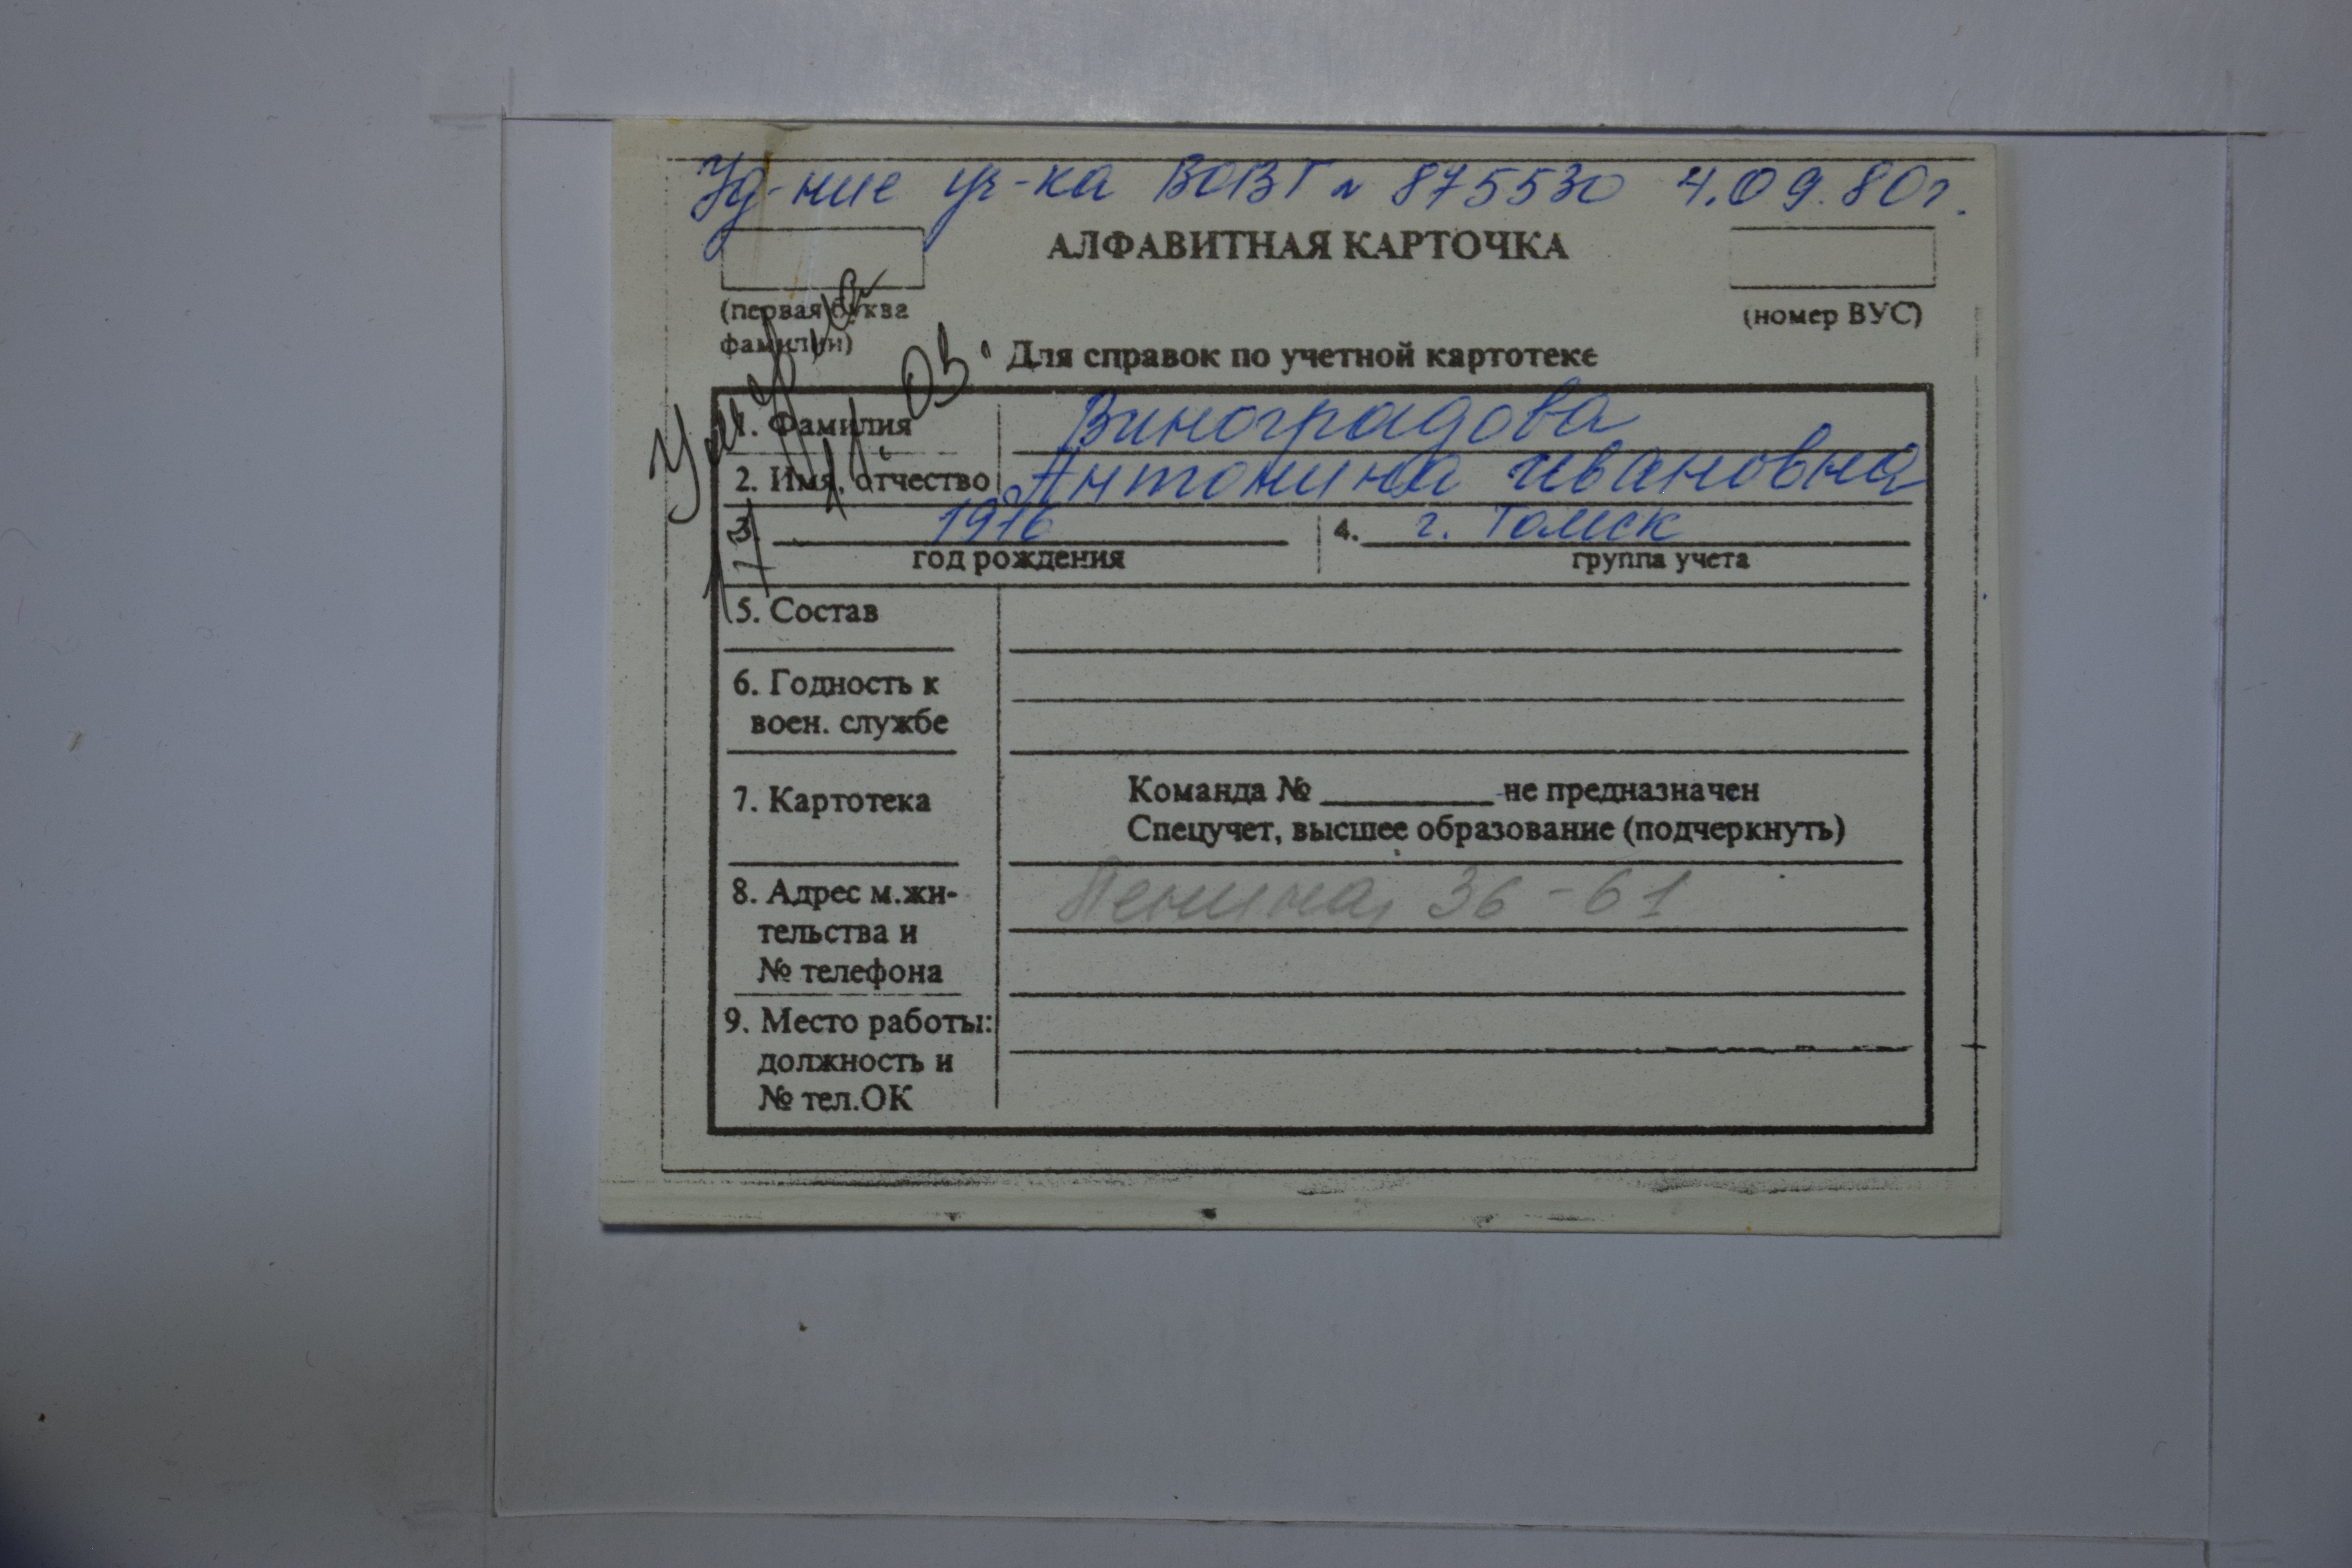 Уд-ние уч-ка ВОВГ № 875530 4.09.80г.
АЛФАВИТНАЯ КАРТОЧКА
(первая буква
фамилии)
(номер ВУС)
Для справок по учетной картотеке
1. Фамилия Виноградова
2. Имя, отчество Антонина Ивановна
3. 1916 4. г. Томск
год рождения группа учета
5. Состав
6. Годность к
воен. службе
7. Картотека
Команда № ________ не предназначен
Спецучет, высшее образование (подчеркнуть)
8. Адрес м.жи-
тельства и
№ телефона
Ленина, 36-61
9. Место работы:
должность и
№ тел.ОК